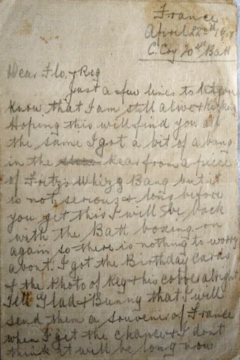 France
April 22nd 1918
C. Coy 20th Batt
Dear Flo, & Reg
Just a few lines to let you
know that I am still alive &
Hoping this will find you all
the same I got a bit of a bang
in the head from a piece
of Fritz's Whizz Bang but it
is not serious & long before
you get this I will be back
with the Batt boxing on
again so there is nothing to worry
about. I got the Birthday cards
& the Photo of Reg & his
Tell Glad & Bunny that I will
send them a souvenir of France
when I get the chance & I don't
think it will be long now